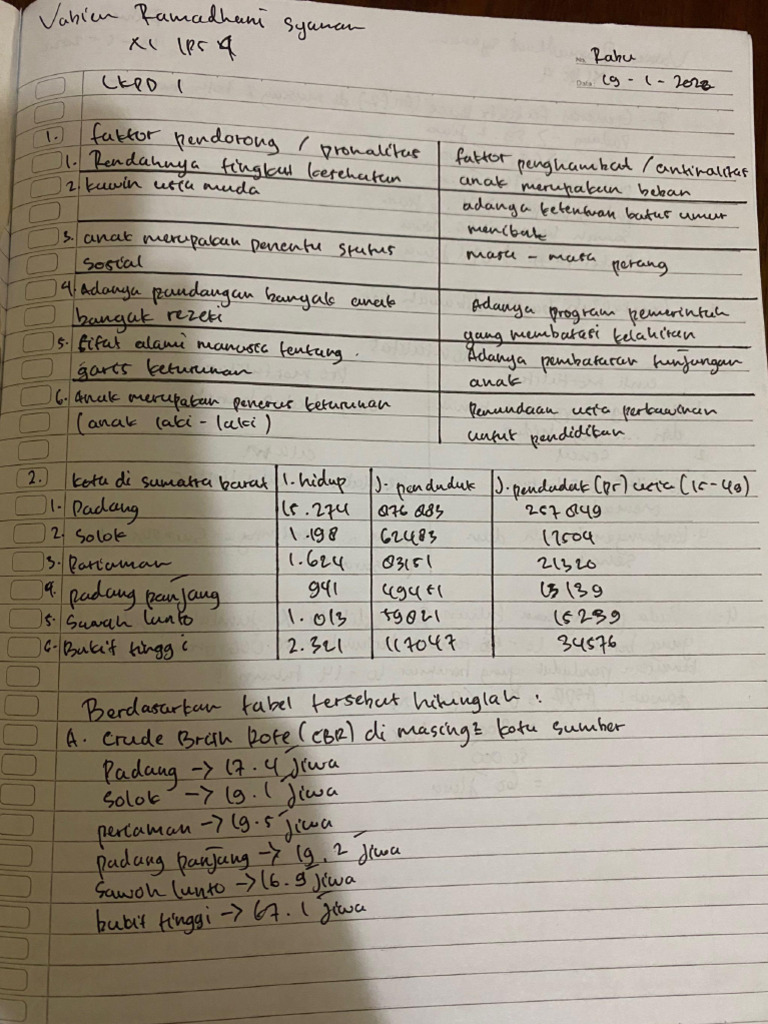 Vabien Ramadhani Syaman
XI IPS 4
No. Rabu
Date 19 - 1 - 2022
LKPD 1
1. faktor pendorong / pronalitas | faktor penghambat / antinalitas
1. Rendahnya tingkat kesehatan | anak merupakan beban
2. kawin usia muda | adanya ketentuan batas umur
menikah
3. anak merupakan penentu status | masa - masa perang
sosial
4. Adanya pandangan banyak anak | Adanya program pemerintah
banyak rezeki | yang membatasi kelahiran
5. Sifat alami manusia tentang. | Adanya pembatasan tunjangan
garis keturunan | anak
6. Anak merupakan penerus keturunan | Penundaan usia perkawinan
(anak laki - laki) | untuk pendidikan
2. kota di sumatra barat | l. hidup | J. penduduk | J. penduduk (pr) usia (15-49)
1. Padang | 15.274 | 876 883 | 257 849
2. Solok | 1.198 | 62483 | 17504
3. Pariaman | 1.624 | 83151 | 21320
4. padang panjang | 941 | 49451 | 13139
5. Sawah lunto | 1.013 | 59821 | 15239
6. Bukit tinggi | 2.321 | 117047 | 34576
Berdasarkan tabel tersebut hitunglah :
A. Crude Brith Rote (CBR) di masing2 kota sumber
Padang -> 17.4 Jiwa
Solok -> 19.1 Jiwa
periaman -> 19.5 Jiwa
padang panjang -> 19.2 Jiwa
Sawoh lunto -> 16.9 Jiwa
bukit tinggi -> 67.1 Jiwa